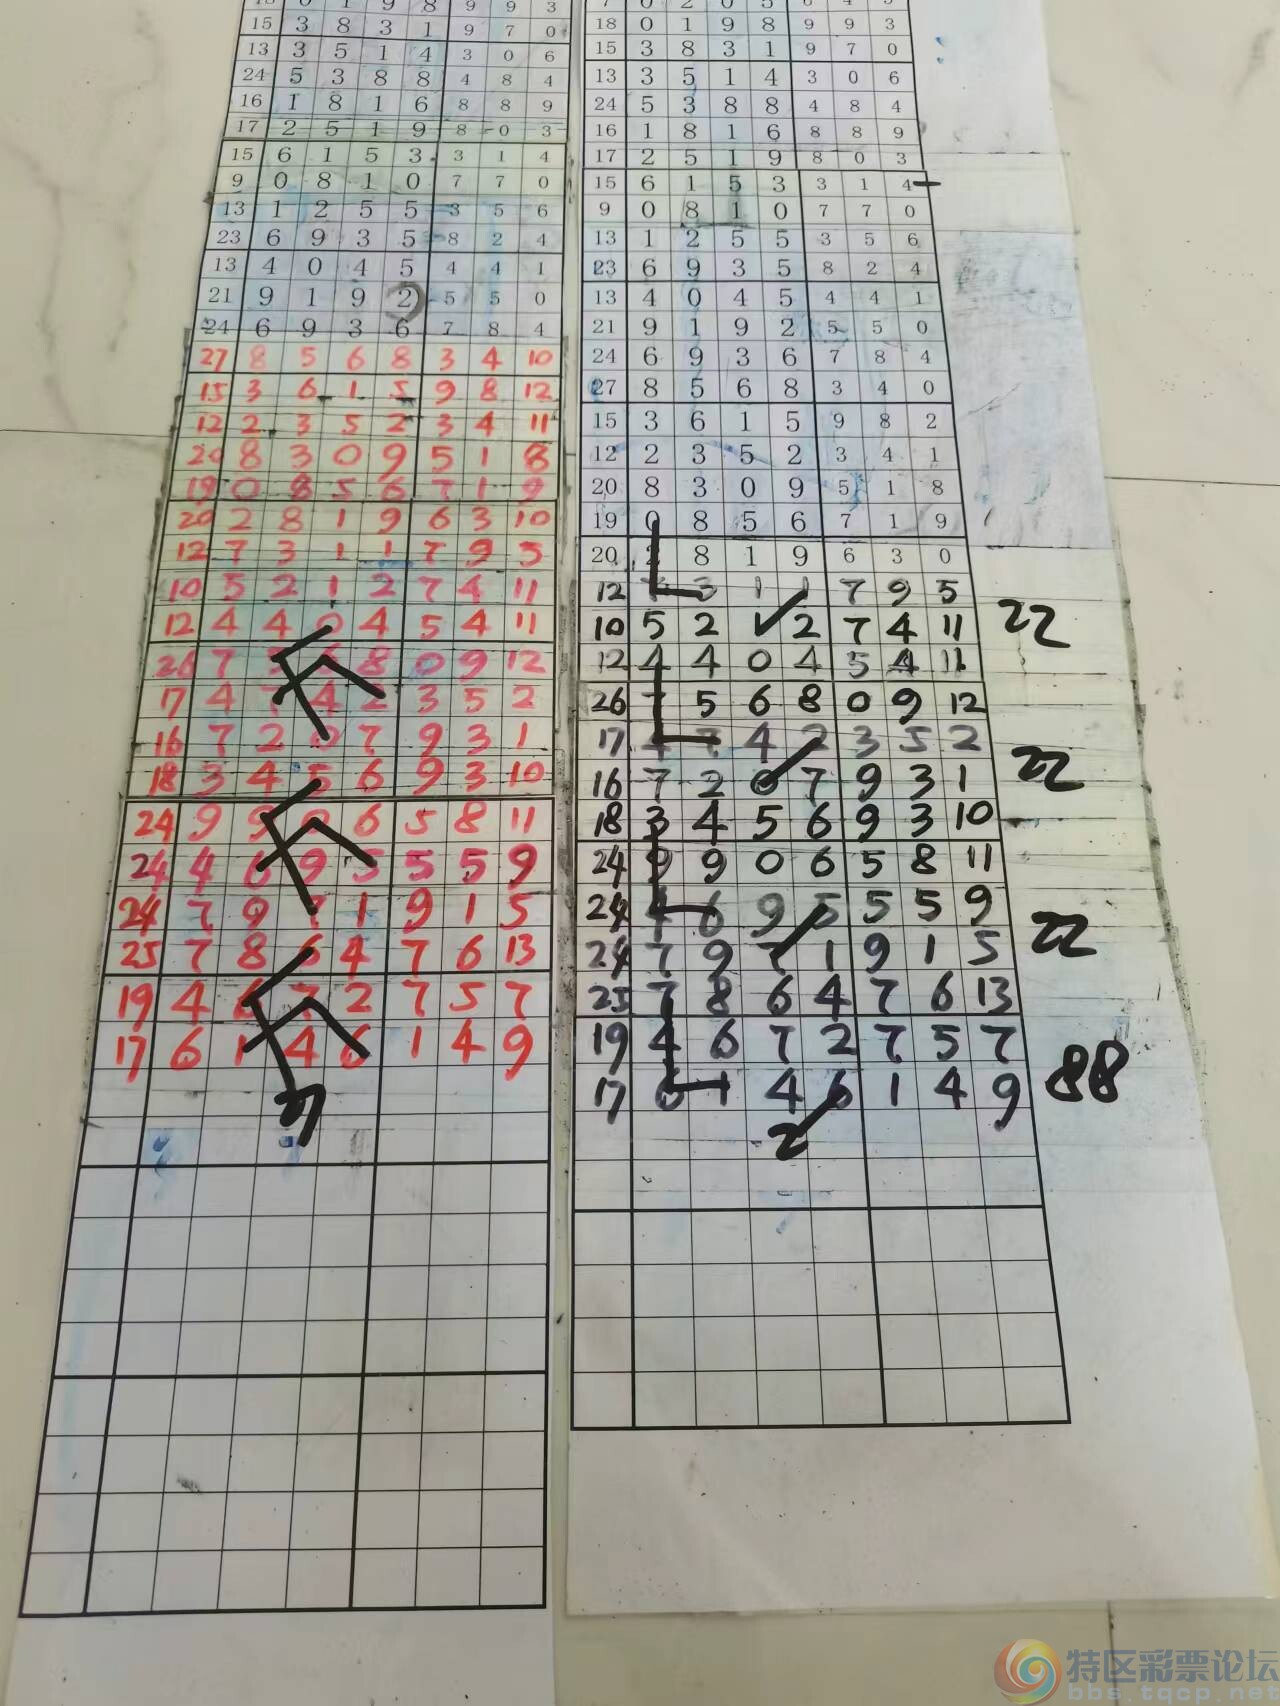 15 3 8 3 1 9 7 0
13 3 5 1 4 3 0 6
24 5 3 8 8 4 8 4
16 1 8 1 6 8 8 9
17 2 5 1 9 8 0 3
15 6 1 5 3 3 1 4
9 0 8 1 0 7 7 0
13 1 2 5 5 3 5 6
23 6 9 3 5 8 2 4
13 4 0 4 5 4 4 1
21 9 1 9 2 5 5 0
24 6 9 3 6 7 8 4
27 8 5 6 8 3 4 10
15 3 6 1 5 9 8 12
12 2 3 5 2 3 4 11
20 8 3 0 9 5 1 8
19 0 8 5 6 7 1 9
20 2 8 1 9 6 3 10
12 7 3 1 1 7 9 5
10 5 2 1 2 7 4 11
12 4 4 0 4 5 4 11
26 7 5 6 8 0 9 12
17 4 7 4 2 3 5 2
16 7 2 0 7 9 3 1
18 3 4 5 6 9 3 10
24 9 9 0 6 5 8 11
24 4 6 9 5 5 5 9
24 7 9 7 1 9 1 5
25 7 8 6 4 7 6 13
19 4 6 7 2 7 5 7
17 6 1 4 6 1 4 9
18 0 1 9 8 9 9 3
15 3 8 3 1 9 7 0
13 3 5 1 4 3 0 6
24 5 3 8 8 4 8 4
16 1 8 1 6 8 8 9
17 2 5 1 9 8 0 3
15 6 1 5 3 3 1 4
9 0 8 1 0 7 7 0
13 1 2 5 5 3 5 6
23 6 9 3 5 8 2 4
13 4 0 4 5 4 4 1
21 9 1 9 2 5 5 0
24 6 9 3 6 7 8 4
27 8 5 6 8 3 4 0
15 3 6 1 5 9 8 2
12 2 3 5 2 3 4 1
20 8 3 0 9 5 1 8
19 0 8 5 6 7 1 9
20 2 8 1 9 6 3 0
12 7 3 1 1 7 9 5
10 5 2 1 2 7 4 11 22
12 4 4 0 4 5 4 11
26 7 5 6 8 0 9 12
17 4 7 4 2 3 5 2
16 7 2 0 7 9 3 1 22
18 3 4 5 6 9 3 10
24 9 9 0 6 5 8 11
24 4 6 9 5 5 5 9
24 7 9 7 1 9 1 5 22
25 7 8 6 4 7 6 13
19 4 6 7 2 7 5 7
17 6 1 4 6 1 4 9 88
2
特区彩票论坛
bbs.tqcp.net